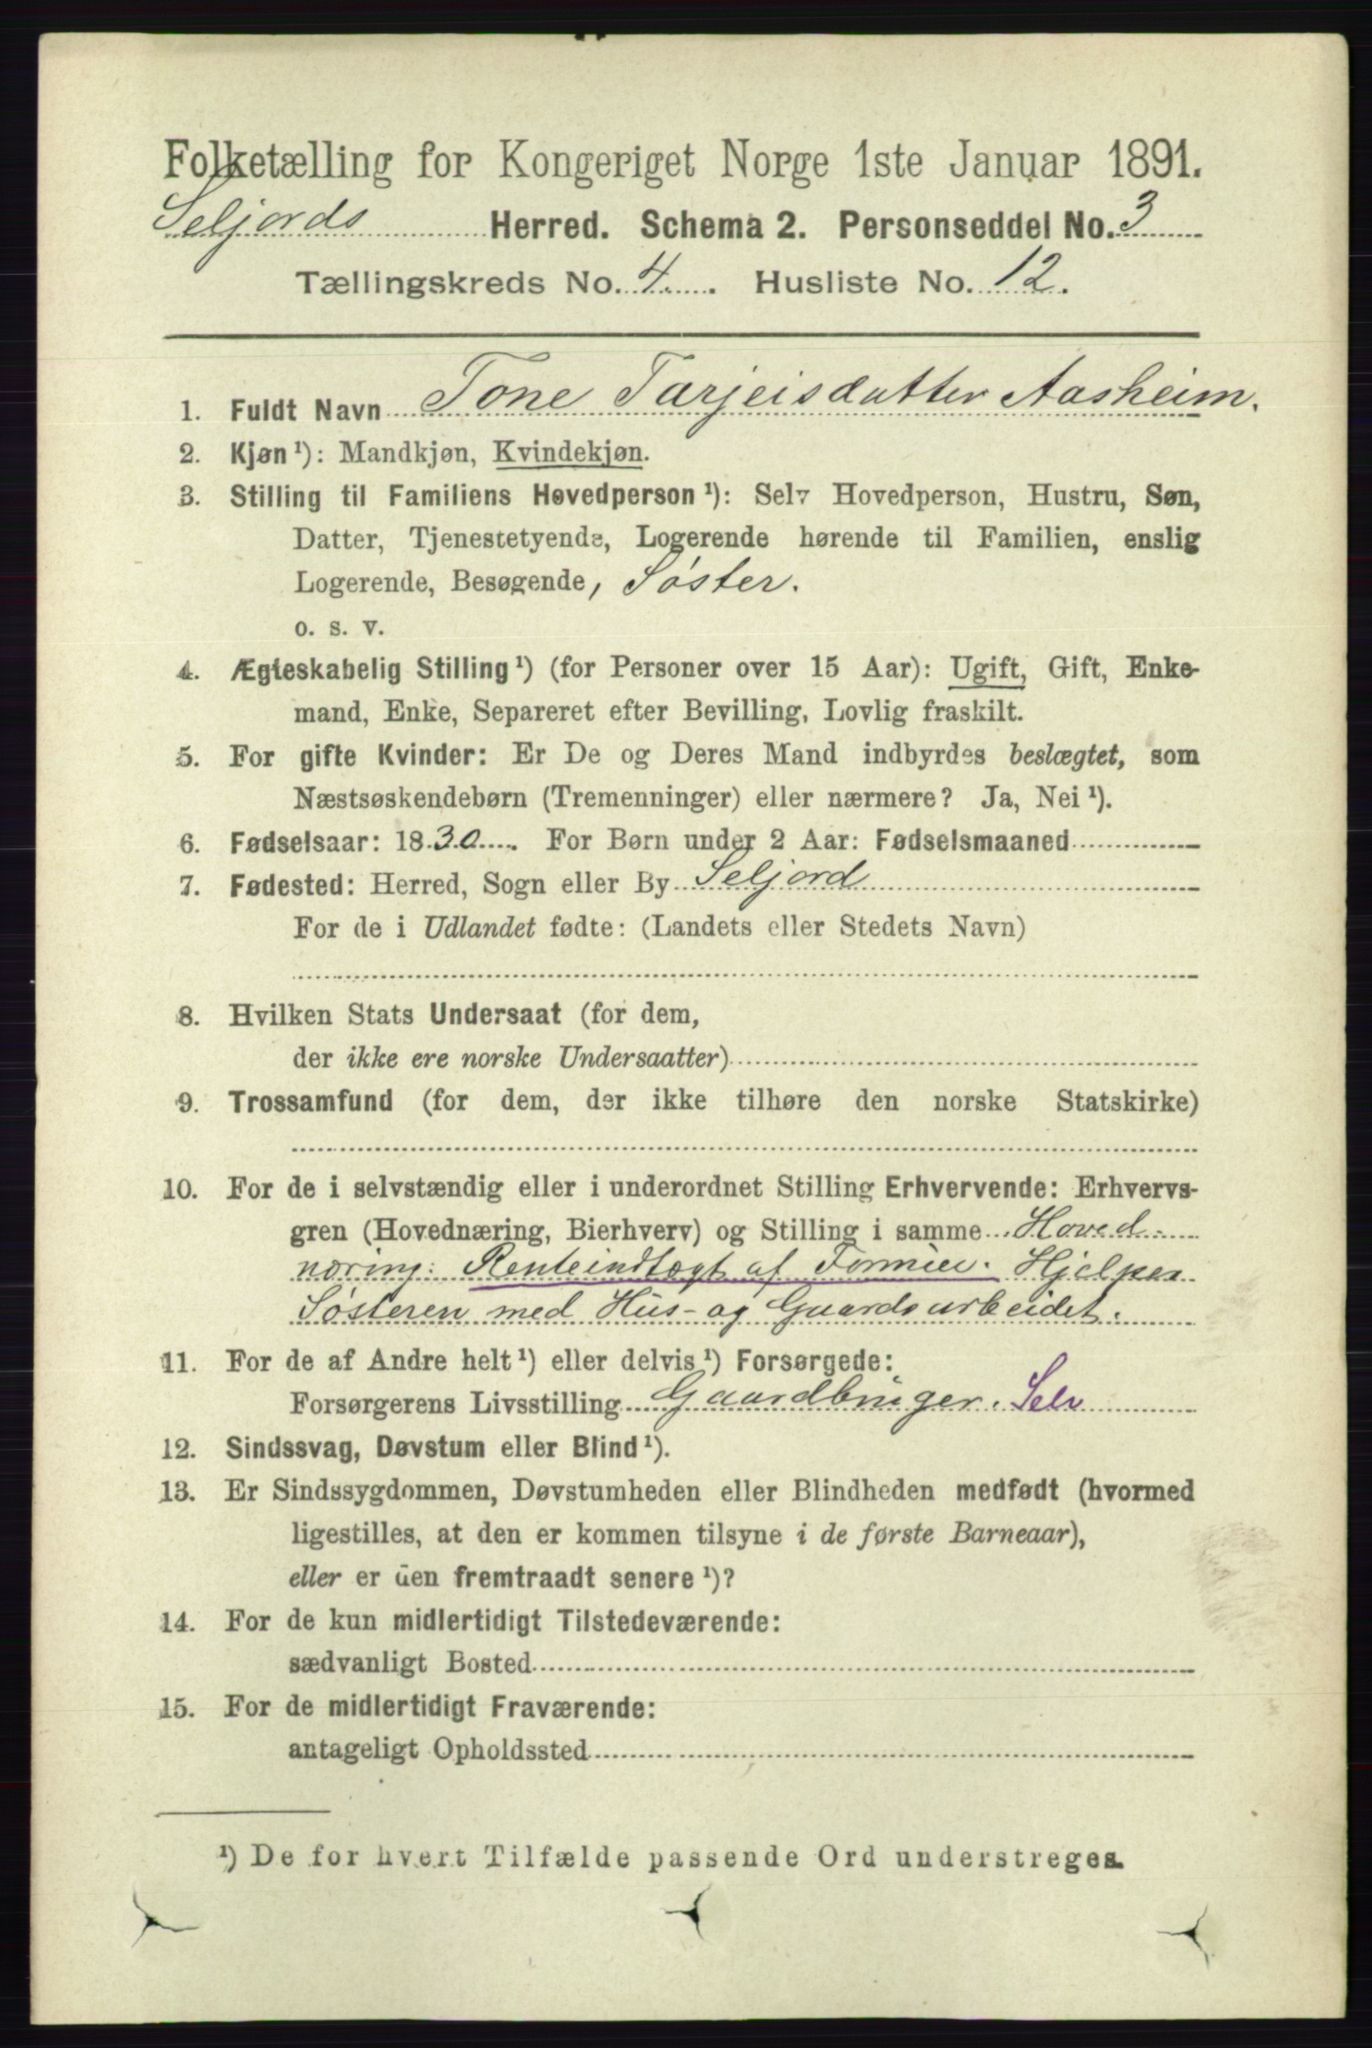 Folketælling for Kongeriget Norge 1ste Januar 1891.
Seljords Herred. Schema 2. Personseddel No. 3
Tællingskreds No. 4. Husliste No. 12.
1. Fuldt Navn Tone Tarjeisdatter Aasheim.
2. Kjøn¹): Mandkjøn, Kvindekjøn.
3. Stilling til Familiens Hovedperson¹): Selv Hovedperson, Hustru, Søn,
Datter, Tjenestetyende, Logerende hørende til Familien, enslig
Logerende, Besøgende, Søster.
o. s. v.
4. Ægteskabelig Stilling¹) (for Personer over 15 Aar): Ugift, Gift, Enke-
mand, Enke, Separeret efter Bevilling, Lovlig fraskilt.
5. For gifte Kvinder: Er De og Deres Mand indbyrdes beslægtet, som
Næstsøskendebørn (Tremenninger) eller nærmere? Ja, Nei¹).
6. Fødselsaar: 1830. For Børn under 2 Aar: Fødselsmaaned
7. Fødested: Herred, Sogn eller By Seljord
For de i Udlandet fødte: (Landets eller Stedets Navn)
8. Hvilken Stats Undersaat (for dem,
der ikke ere norske Undersaatter)
9. Trossamfund (for dem, der ikke tilhøre den norske Statskirke)
10. For de i selvstændig eller i underordnet Stilling Erhvervende: Erhvervs-
gren (Hovednæring, Bierhverv) og Stilling i samme Hoved-
næring: Renteindtægt af Formue. Hjelper
Søsteren med Hus- og Gaardsarbeidet.
11. For de af Andre helt¹) eller delvis¹) Forsørgede:
Forsørgerens Livsstilling Gaardbruger. Selv
12. Sindssvag, Døvstum eller Blind¹).
13. Er Sindssygdommen, Døvstumheden eller Blindheden medfødt (hvormed
ligestilles, at den er kommen tilsyne i de første Barneaar),
eller er den fremtraadt senere¹)?
14. For de kun midlertidigt Tilstedeværende:
sædvanligt Bosted
15. For de midlertidigt Fraværende:
antageligt Opholdssted
¹) De for hvert Tilfælde passende Ord understreges.